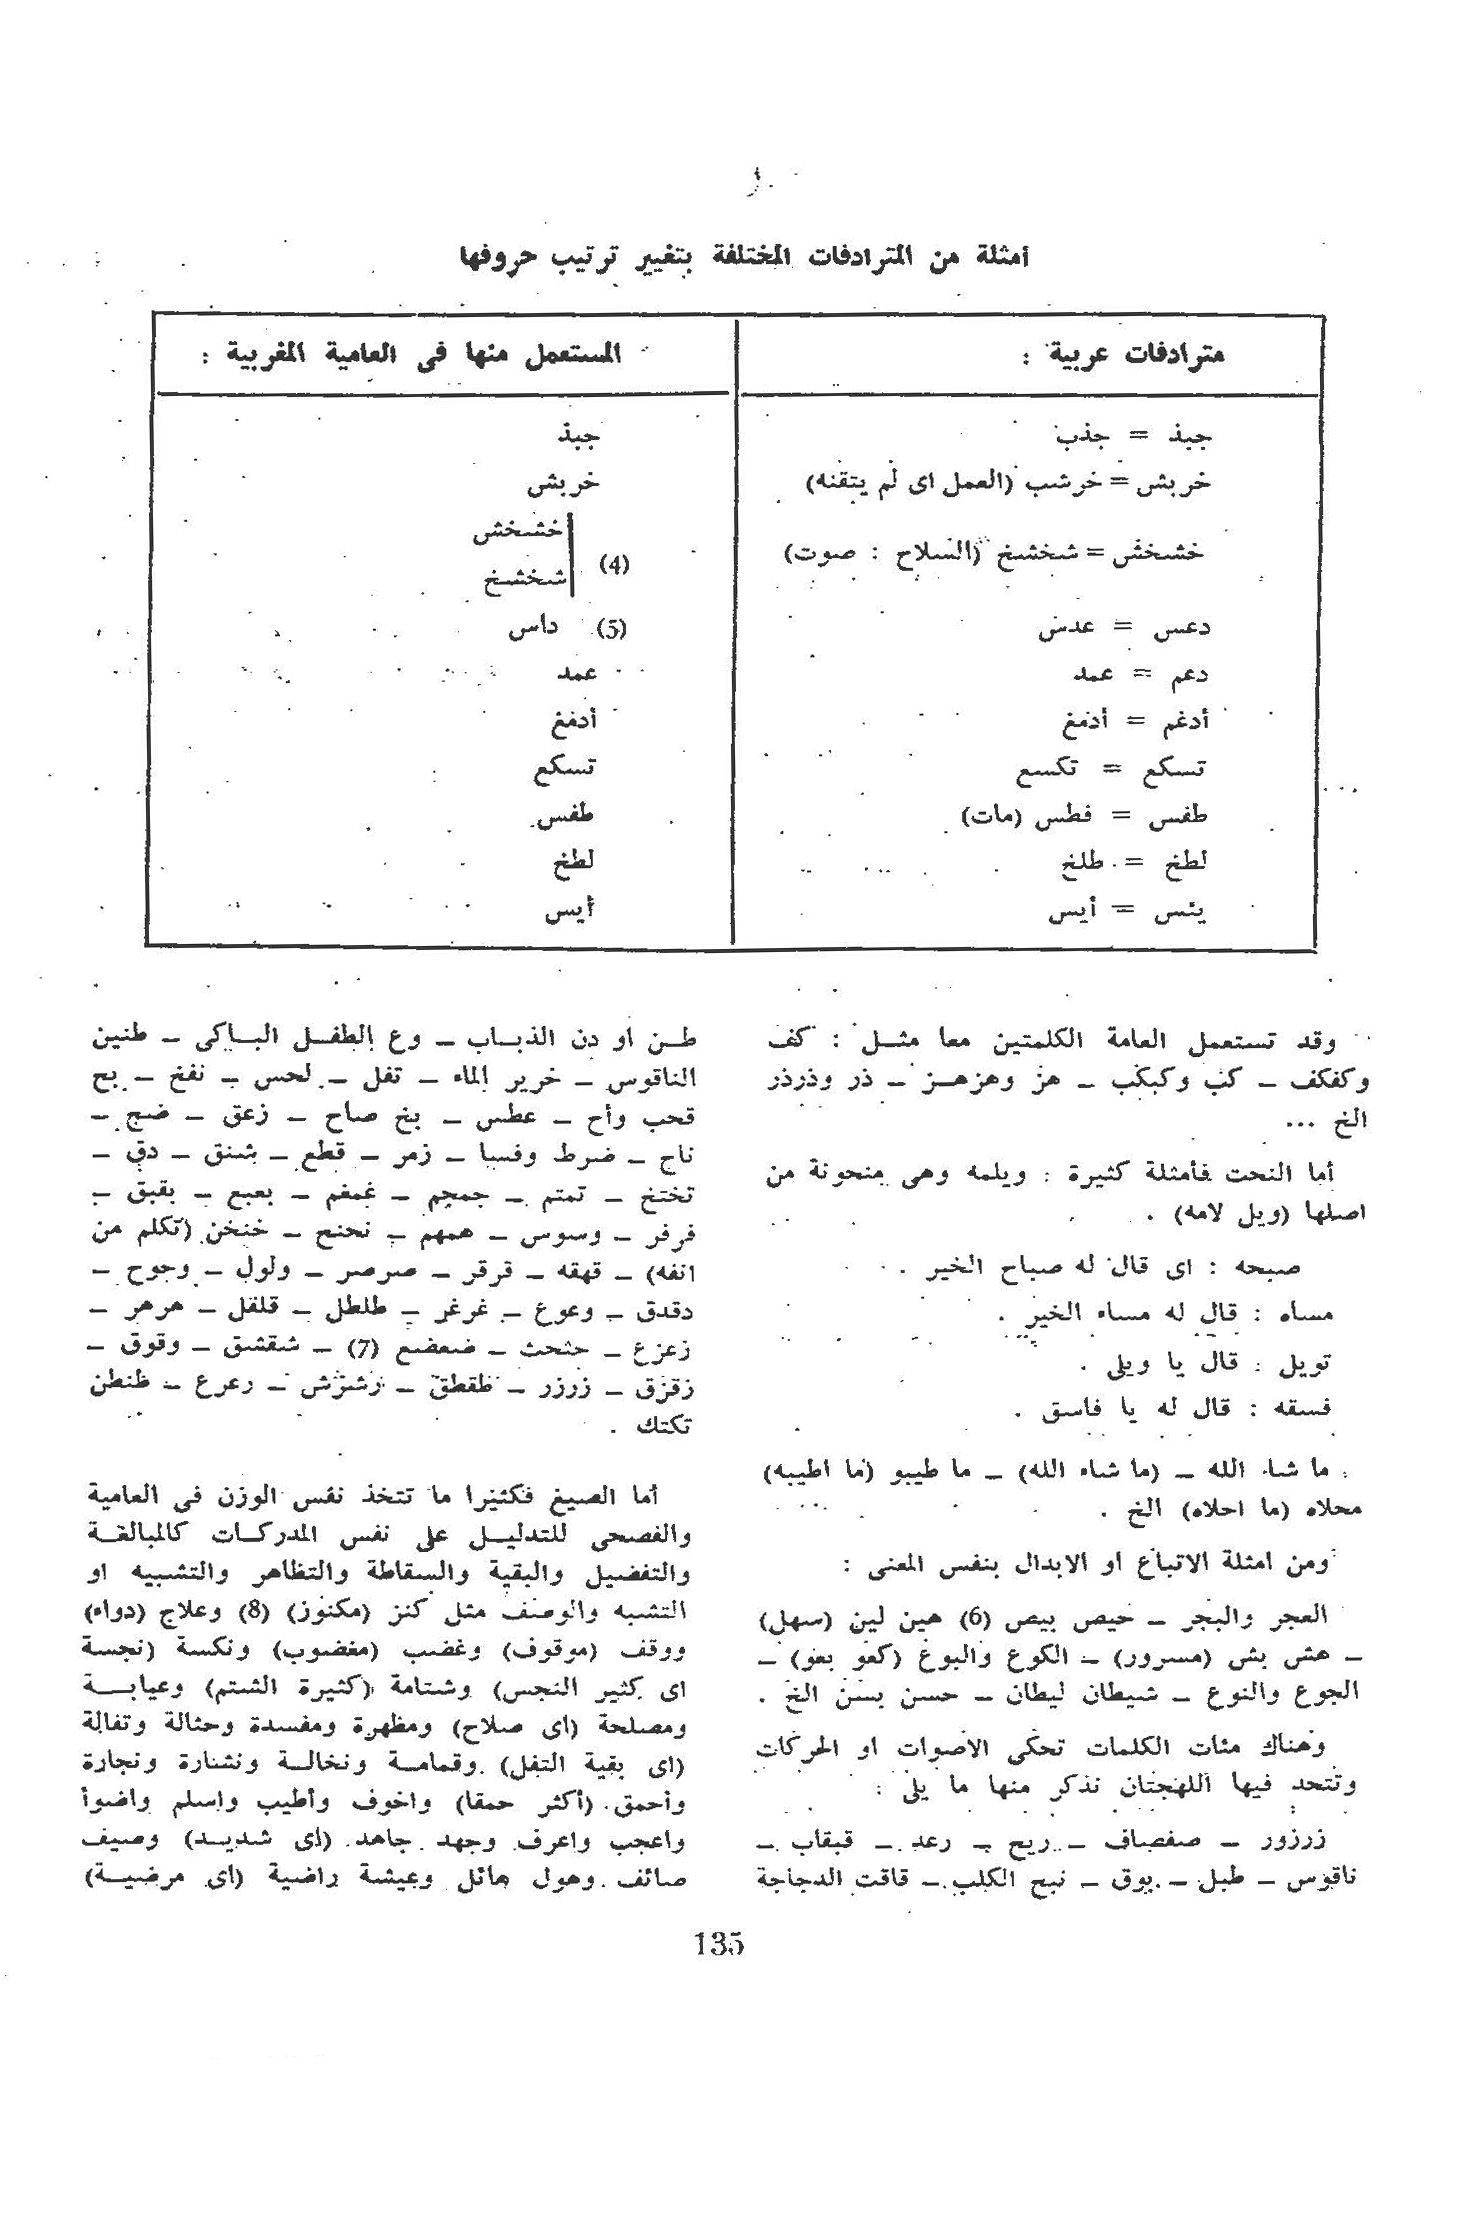 أمثلة من المترادفات المختلفة بتغيير ترتيب حروفها
مترادفات عربية :
المستعمل منها فى العامية المغربية :
جبذ = جذب
جبذ
خربش = خرشب (العمل اى لم يتقنه)
خربش
خشخش = شخشخ (السلاح : صوت)
(4) خشخش
شخشخ
دعس = عدس
(5) داس
دعم = عمد
عمد
أدغم = أدمغ
أدمغ
تسكع = تكسع
تسكع
طفس = فطس (مات)
طفس
لطخ = طلخ
لطخ
يئس = أيس
أيس
وقد تستعمل العامة الكلمتين معا مثـل : كف
وكفكف ـ كب وكبكب ـ هز وهزهـز ـ ذر وذرذر
الخ ...
أما النحت فأمثلة كثيرة : ويلمه وهى منحونة من
اصلها (ويل لامه) .
صبحه : اى قال له صباح الخير .
مساه : قال له مساء الخير .
تويل : قال يا ويلى .
فسقه : قال له يا فاسق .
ما شا الله ـ (ما شاء الله) ـ ما طيبو (ما اطيبه)
محلاه (ما احلاه) الخ .
ومن امثلة الاتباع او الابدال بنفس المعنى :
العجر والبجر ـ حيص بيص (6) هين لين (سهل)
ـ هش بش (مسرور) ـ الكوع والبوع (كعو بعو) ـ
الجوع والنوع ـ شيطان ليطان ـ حسن بسن الخ .
وهناك مئات الكلمات تحكى الاصوات او الحركات
وتتحد فيها اللهجتان نذكر منها ما يلى :
زرزور ـ صفصاف ـ ريح ـ رعد ـ قبقاب ـ
ناقوس ـ طبل ـ بوق ـ نبح الكلب ـ قاقت الدجاجة
طـن او دن الذبـاب ـ وع الطفـل البـاكى ـ طنين
الناقوس ـ خرير الماء ـ تفل ـ لحس ـ نفخ ـ بح
قحب وأح ـ عطس ـ بخ صاح ـ زعق ـ ضج ـ
ناح ـ ضرط وفسا ـ زمر ـ قطع ـ شنق ـ دق ـ
تختخ ـ تمتم ـ جمجم ـ غمغم ـ بعبع ـ بقبق ـ
فرفر ـ وسوس ـ همهم ـ نحنح ـ خنخن (تكلم من
انفه) ـ قهقه ـ قرقر ـ صرصر ـ ولول ـ وحوح ـ
دقدق ـ وعوع ـ غرغر ـ طلطل ـ قلقل ـ هرهر ـ
زعزع ـ حثحث ـ ضعضع (7) ـ شقشق ـ وقوق ـ
زقزق ـ زرزر ـ طقطق ـ رشرش ـ رعرع ـ طنطن
تكتك .
أما الصيغ فكثيرا ما تتخذ نفس الوزن فى العامية
والفصحى للتدليـل على نفس المدركـات كالمبالغـة
والتفضيل والبقية والسقاطة والتظاهر والتشبيه او
التشبه والوصف مثل كنز (مكنوز) (8) وعلاج (دواء)
ووقف (موقوف) وغضب (مغضوب) ونكسة (نجسة
اى كثير النجس) وشتامة (كثيرة الشتم) وعيابـة
ومصلحة (اى صلاح) ومظهرة ومفسدة وحثالة وتفالة
(اى بقية التفل) وقمامـة ونخالـة ونشارة ونجارة
وأحمق (أكثر حمقا) واخوف وأطيب واسلم واضوأ
واعجب واعرف وجهد جاهد (اى شديـد) وصيف
صائف وهول هائل وعيشة راضية (اى مرضيـة)
135